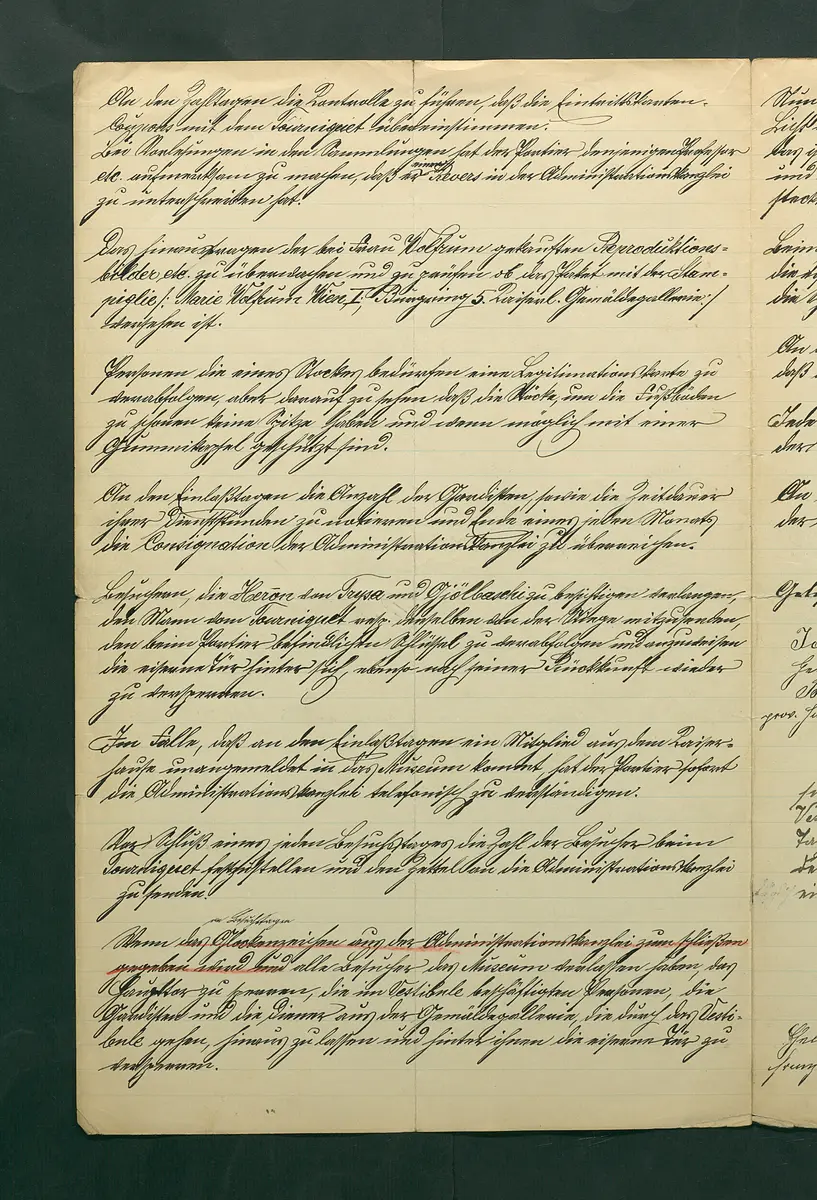 An den Zahltagen die Kontrolle zu führen, daß die Eintrittskarten-
Coupons mit dem Tourniquet übereinstimmen.
Bei Vorlesungen in den Sammlungen hat der Portier denjenigen Professor
etc. aufmerksam zu machen, daß er einen Revers in der Administrationskanzlei
zu unterschreiben hat.
Das Hinaustragen der bei Frau Wolfrum gekauften Reproduktions-
bilder, etc. zu überwachen und zu prüfen ob das Paket mit der Stam-
piglie /: Marie Wolfrum Wien I, Burgring 5 Kaiserl. Gemäldegallerie :/
versehen ist.
Personen die eines Stockes bedürfen eine Legitimationskarte zu
verabfolgen, aber darauf zu sehen daß die Stöcke, um die Fußböden
zu schonen keine Spitze haben und wenn möglich mit einer
Gummikapsel geschützt sind.
An den Einlaßtagen die Anzahl der Gardisten, sowie die Zeitdauer
ihrer Dienststunden zu notieren und Ende eines jeden Monats
die Consignation der Administrationskanzlei zu überreichen.
Besuchern, die Heroon von Trysa und Gjölbaschi zu besichtigen verlangen,
den Mann vom Tourniquet resp. denselben von der Stiege mitzusenden,
den beim Portier befindlichen Schlüssel zu verabfolgen und anzuweisen
die eiserne Tür hinter sich, ebenso nach seiner Rückkunft wieder
zu versperren.
Im Falle, daß an den Einlaßtagen ein Mitglied aus dem Kaiser-
hause unangemeldet in das Museum kommt, hat der Portier sofort
die Administrationskanzlei telefonisch zu verständigen.
Vor Schluß eines jeden Besuchstages die Zahl der Besucher beim
Tourniquet festzustellen und den Zettel an die Administrationskanzlei
zu senden.
an Besuchstagen
Wenn das Glockenzeichen aus der Administrationskanzlei zum schließen
gegeben wird und alle Besucher das Museum verlassen haben, das
Haupttor zu sperren, die im Vestibule beschäftigten Personen, die
Gardisten und die Diener aus der Gemäldegallerie, die durch das Vesti-
bule gehen, hinaus zu lassen und hinter ihnen die eiserne Tür zu
versperren.